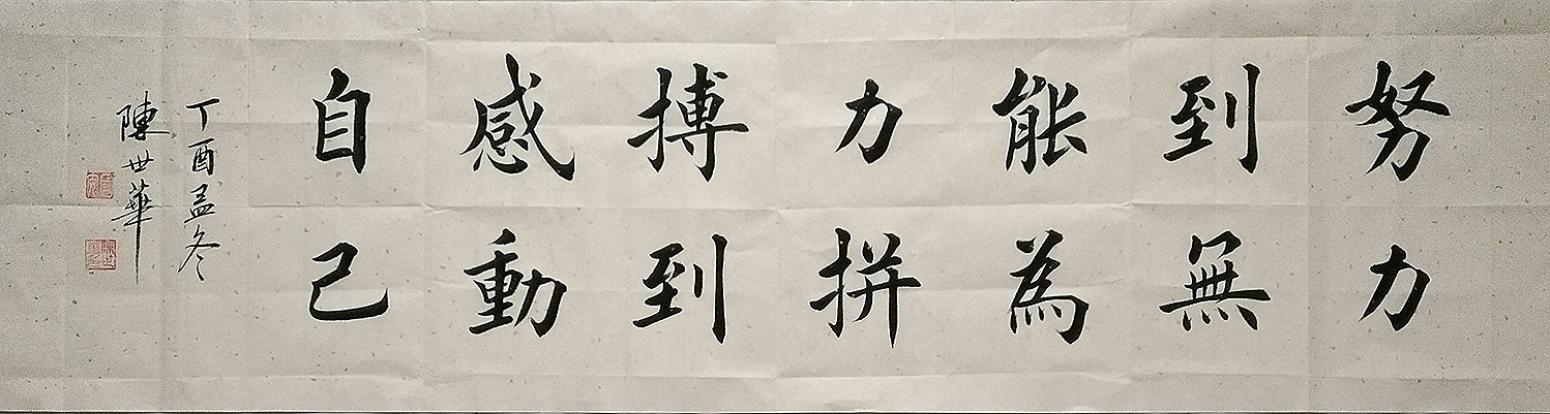 努力
到無
能為
力拼
搏到
感動
自己
丁酉孟冬
陳世華